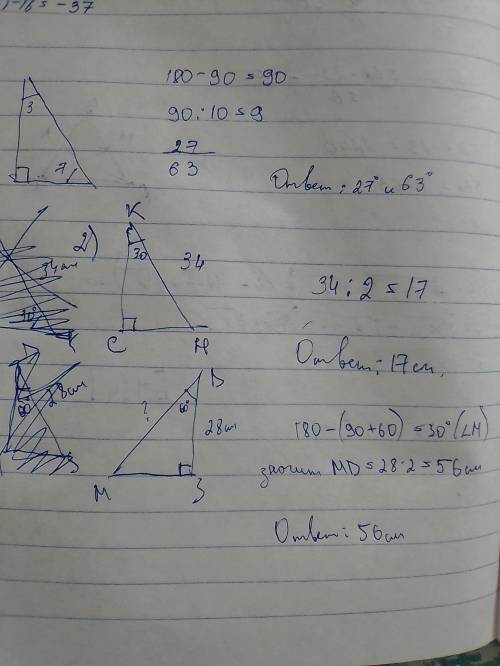 -16 = -37
3
7
180 - 90 = 90
90 : 10 = 9
27
63
Ответ: 27° и 63°
2)
34 см
К
30
34
С
Н
34 : 2 = 17
Ответ: 17 см.
60°
28 см
D
?
60°
28 см
М
З
180 - (90 + 60) = 30° (∠М)
значит MD = 28 · 2 = 56 см
Ответ: 56 см